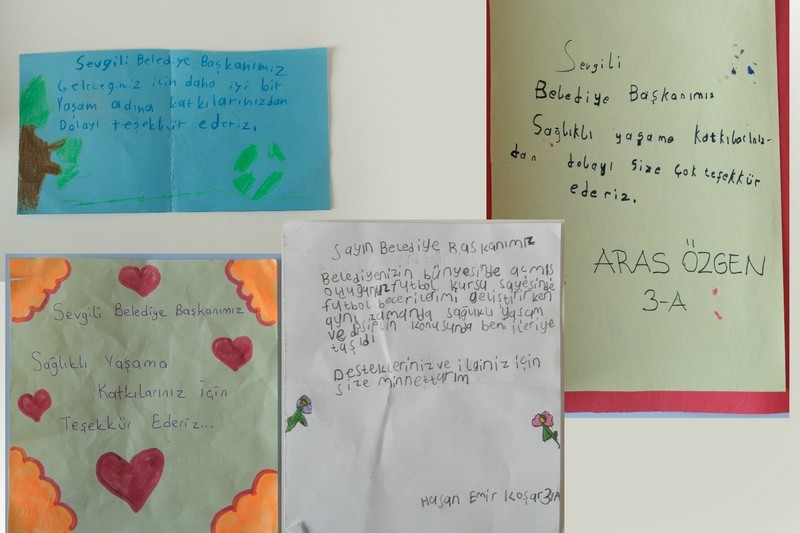 Sevgili Belediye Başkanımız
Geleceğimiz için daha iyi bir
Yaşam adına katkılarınızdan
Dolayı teşekkür ederiz.
Sevgili
Belediye Başkanımız
Sağlıklı yaşama katkılarınız-
dan dolayı size çok teşekkür
ederiz.
ARAS ÖZGEN
3-A
Sevgili Belediye Başkanımız
Sağlıklı Yaşama
Katkılarınız İçin
Teşekkür Ederiz...
Sayın Belediye Başkanımız
Belediyenizin bünyesinde açmış
olduğunuz futbol kursu sayesinde
futbol becerilerimi geliştirirken
aynı zamanda sağlıklı yaşam
ve disiplin konusunda beni ileriye
taşıdı
Destekleriniz ve ilginiz için
size minnettarım
Hasan Emir Koşar 3/A